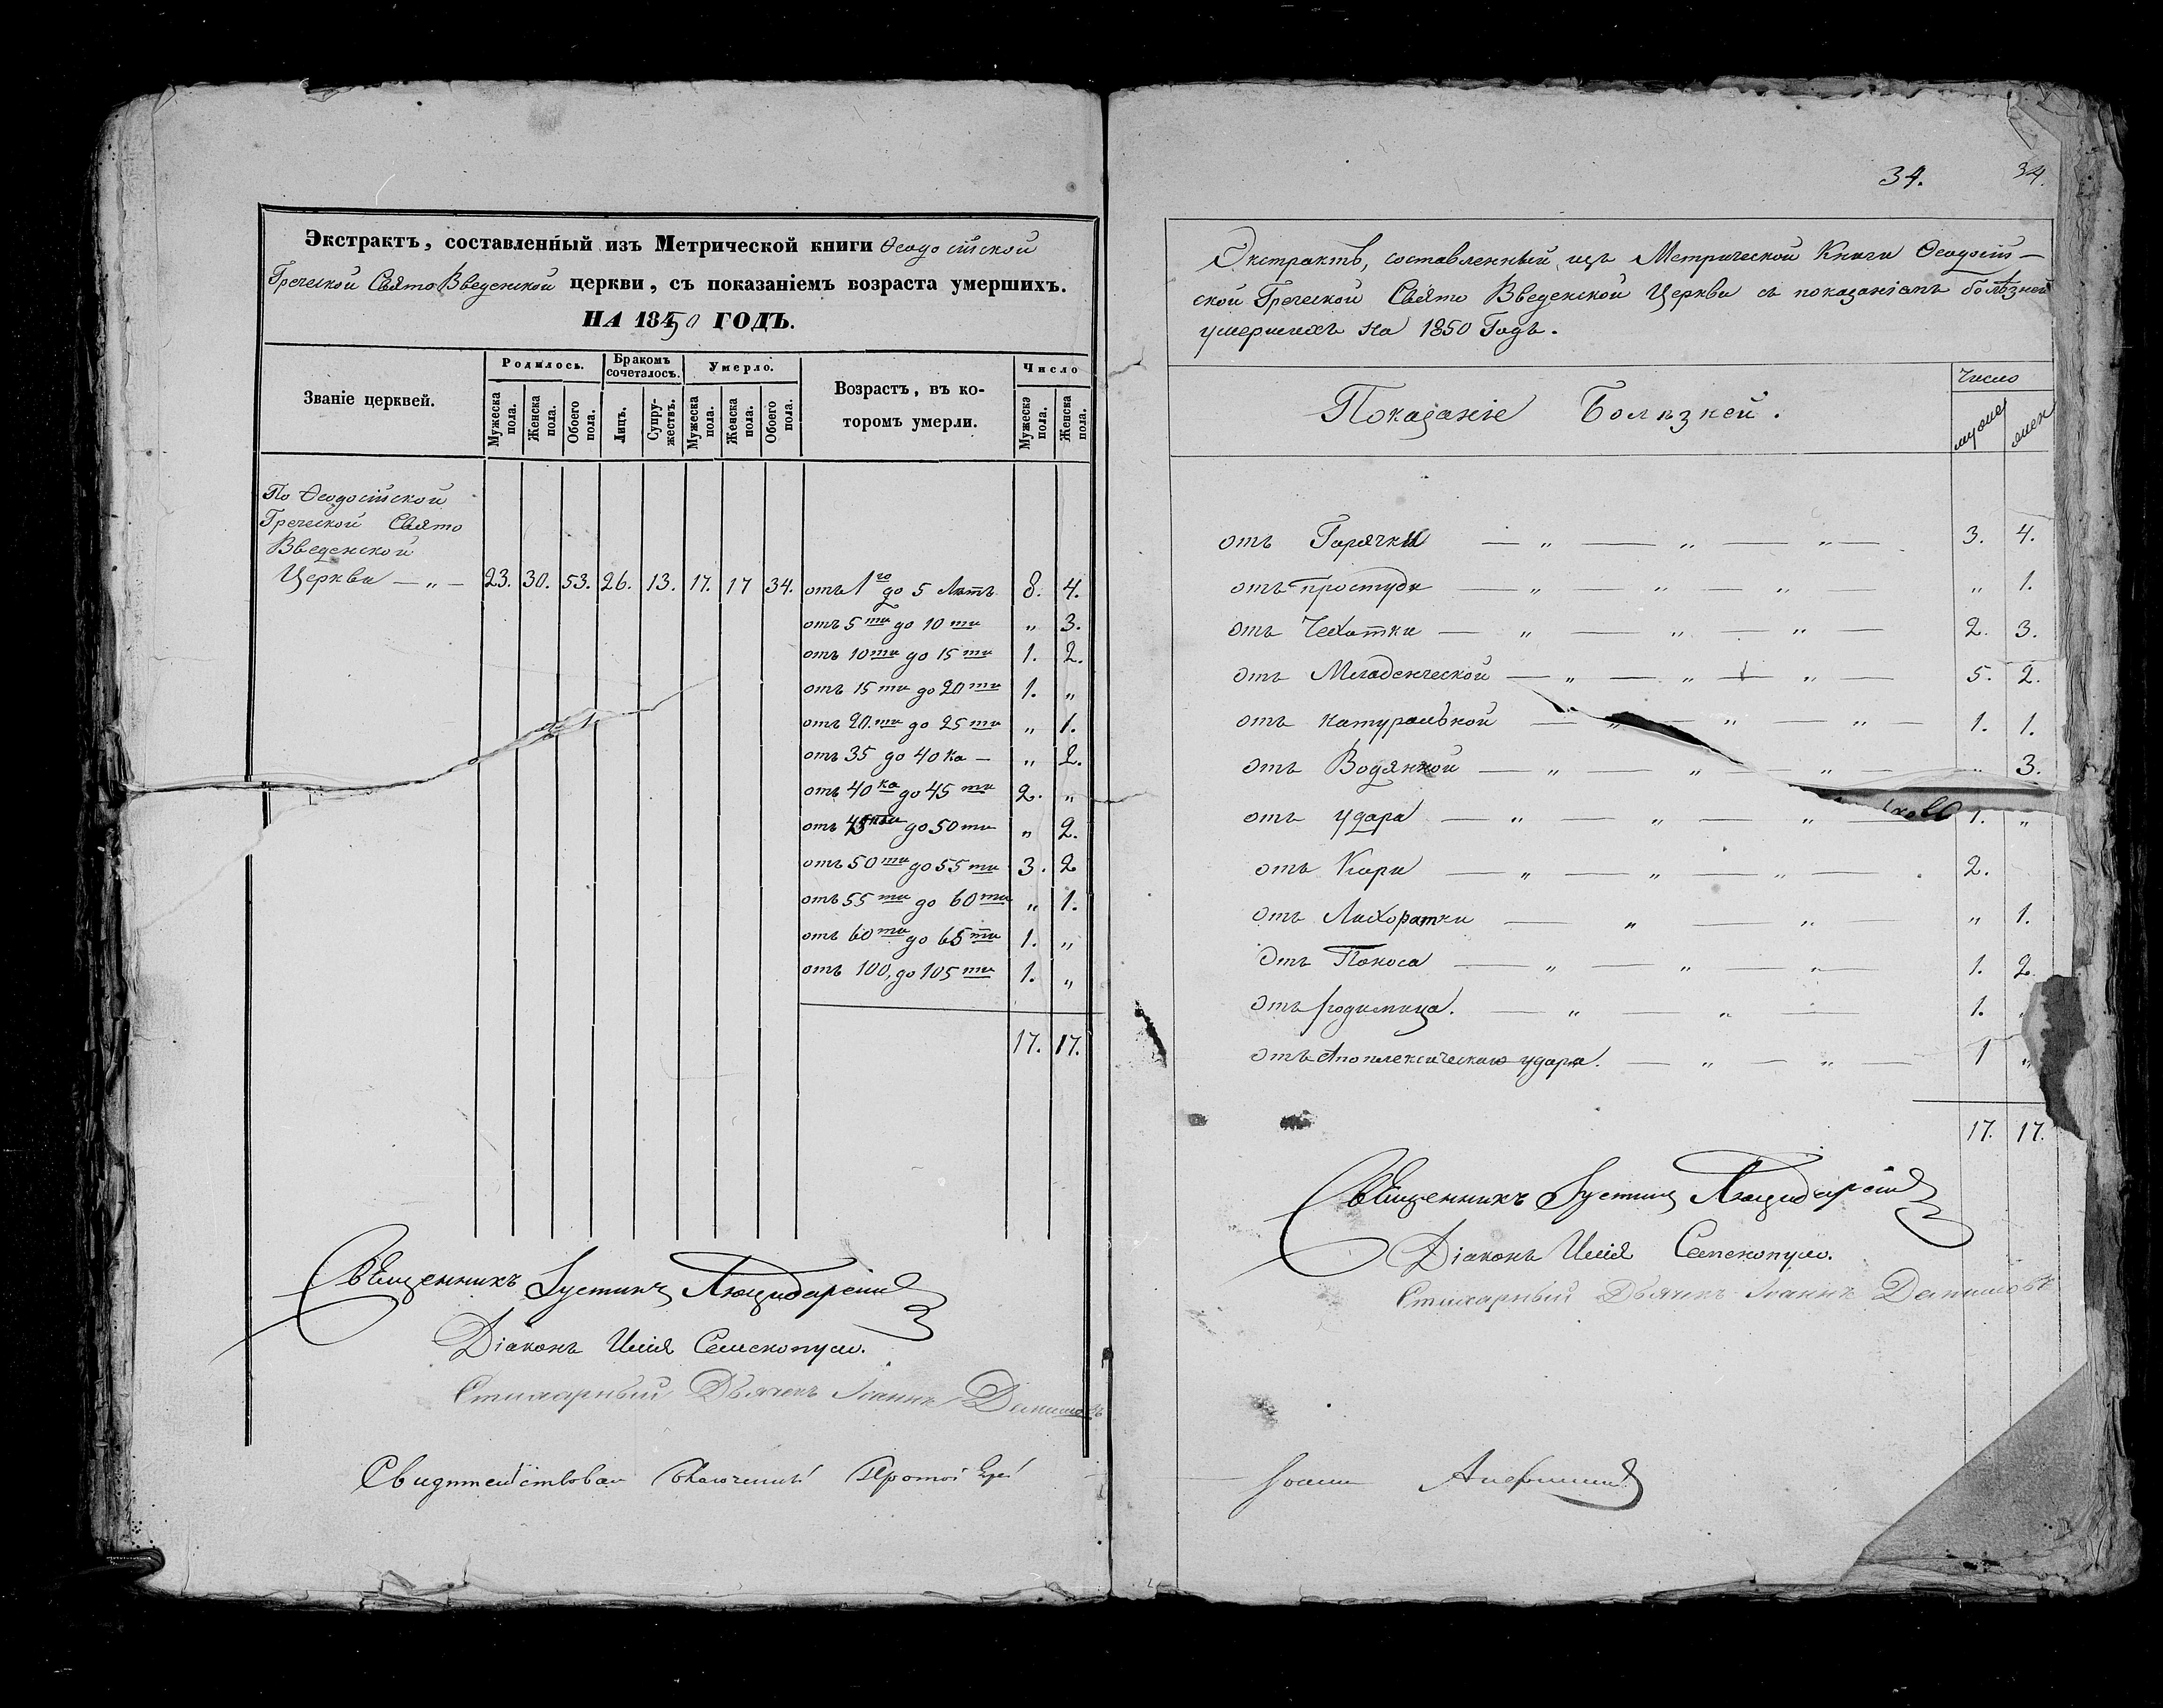 Экстрактъ, составленный изъ Метрической книги Ѳеодосійской
Греческой Свято Введенской церкви, съ показаніемъ возраста умершихъ.
НА 1850 ГОДЪ.
Званіе церквей.
Родилось.
Бракомъ сочеталось.
Умерло.
Возрастъ, въ ко-
торомъ умерли.
Число
Мужеска пола.
Женска пола.
Обоего пола.
Лицъ.
Супру-
жествъ.
Мужеска пола.
Женска пола.
Обоего пола.
Мужеска пола.
Женска пола.
По Ѳеодосійской
Греческой Свято
Введенской
Церкви — „ — 23. 30. 53. 26. 13. 17. 17 34. отъ 1го до 5 Лѣтъ 8. 4.
отъ 5 ти до 10 ти „ 3.
отъ 10 ти до 15 ти 1. 2.
отъ 15 ти до 20 ти 1. „
отъ 20. ти до 25 ти „ 1.
отъ 35 до 40 ка — „ 2.
отъ 40 ка до 45 ти 2. „
отъ 45 ти до 50 ти „ 2.
отъ 50 ти до 55 ти 3. 2
отъ 55 ти до 60 ти „ 1.
отъ 60 ти до 65 ти 1. „
отъ 100, до 105 ти 1. „
17. 17.
Священникъ Іустинъ
Діаконъ Илія
Стихарный Дьячекъ Іоаннъ Даниловъ
Свидѣтельствовал Благочинный Протоіерей
34. 34.
Экстрактъ, составленный изъ Метрической Книги Ѳеодосій-
ской Греческой Свято Введенской Церкви съ показаніемъ болѣзней
умершихъ на 1850 Годъ.
Показаніе Болѣзней.
Число
муже
жен
отъ Горячки — „ — „ — „ — 3. 4.
отъ простуди — „ — „ — „ — „ 1.
отъ Чехотки — „ — „ — „ — 2. 3.
отъ Младенческой — „ — „ — „ — 5. 2.
отъ натуральной — „ — „ — „ — 1. 1.
отъ Водянной — „ — „ — „ — „ 3.
отъ удара — „ — „ — „ — 1. „
отъ Кори — „ — „ — „ — 2.
отъ Лихоратки — „ — „ „ 1.
отъ Поноса — „ — „ — „ 1. 2.
отъ родимица. — „ — „ — 1. „
отъ Апоплексическаго удара. — „ — „ — 1 „
17. 17.
Священникъ Іустинъ
Діаконъ Илія
Стихарный Дьячекъ Іоаннъ Даниловъ
Іоанн